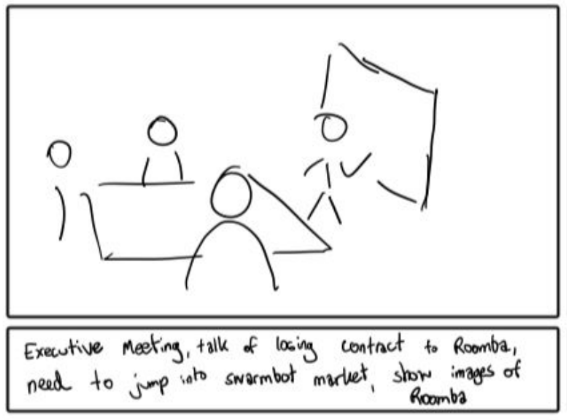 Executive Meeting, talk of losing contract to Roomba,
need to jump into swarmbot market, show images of
Roomba